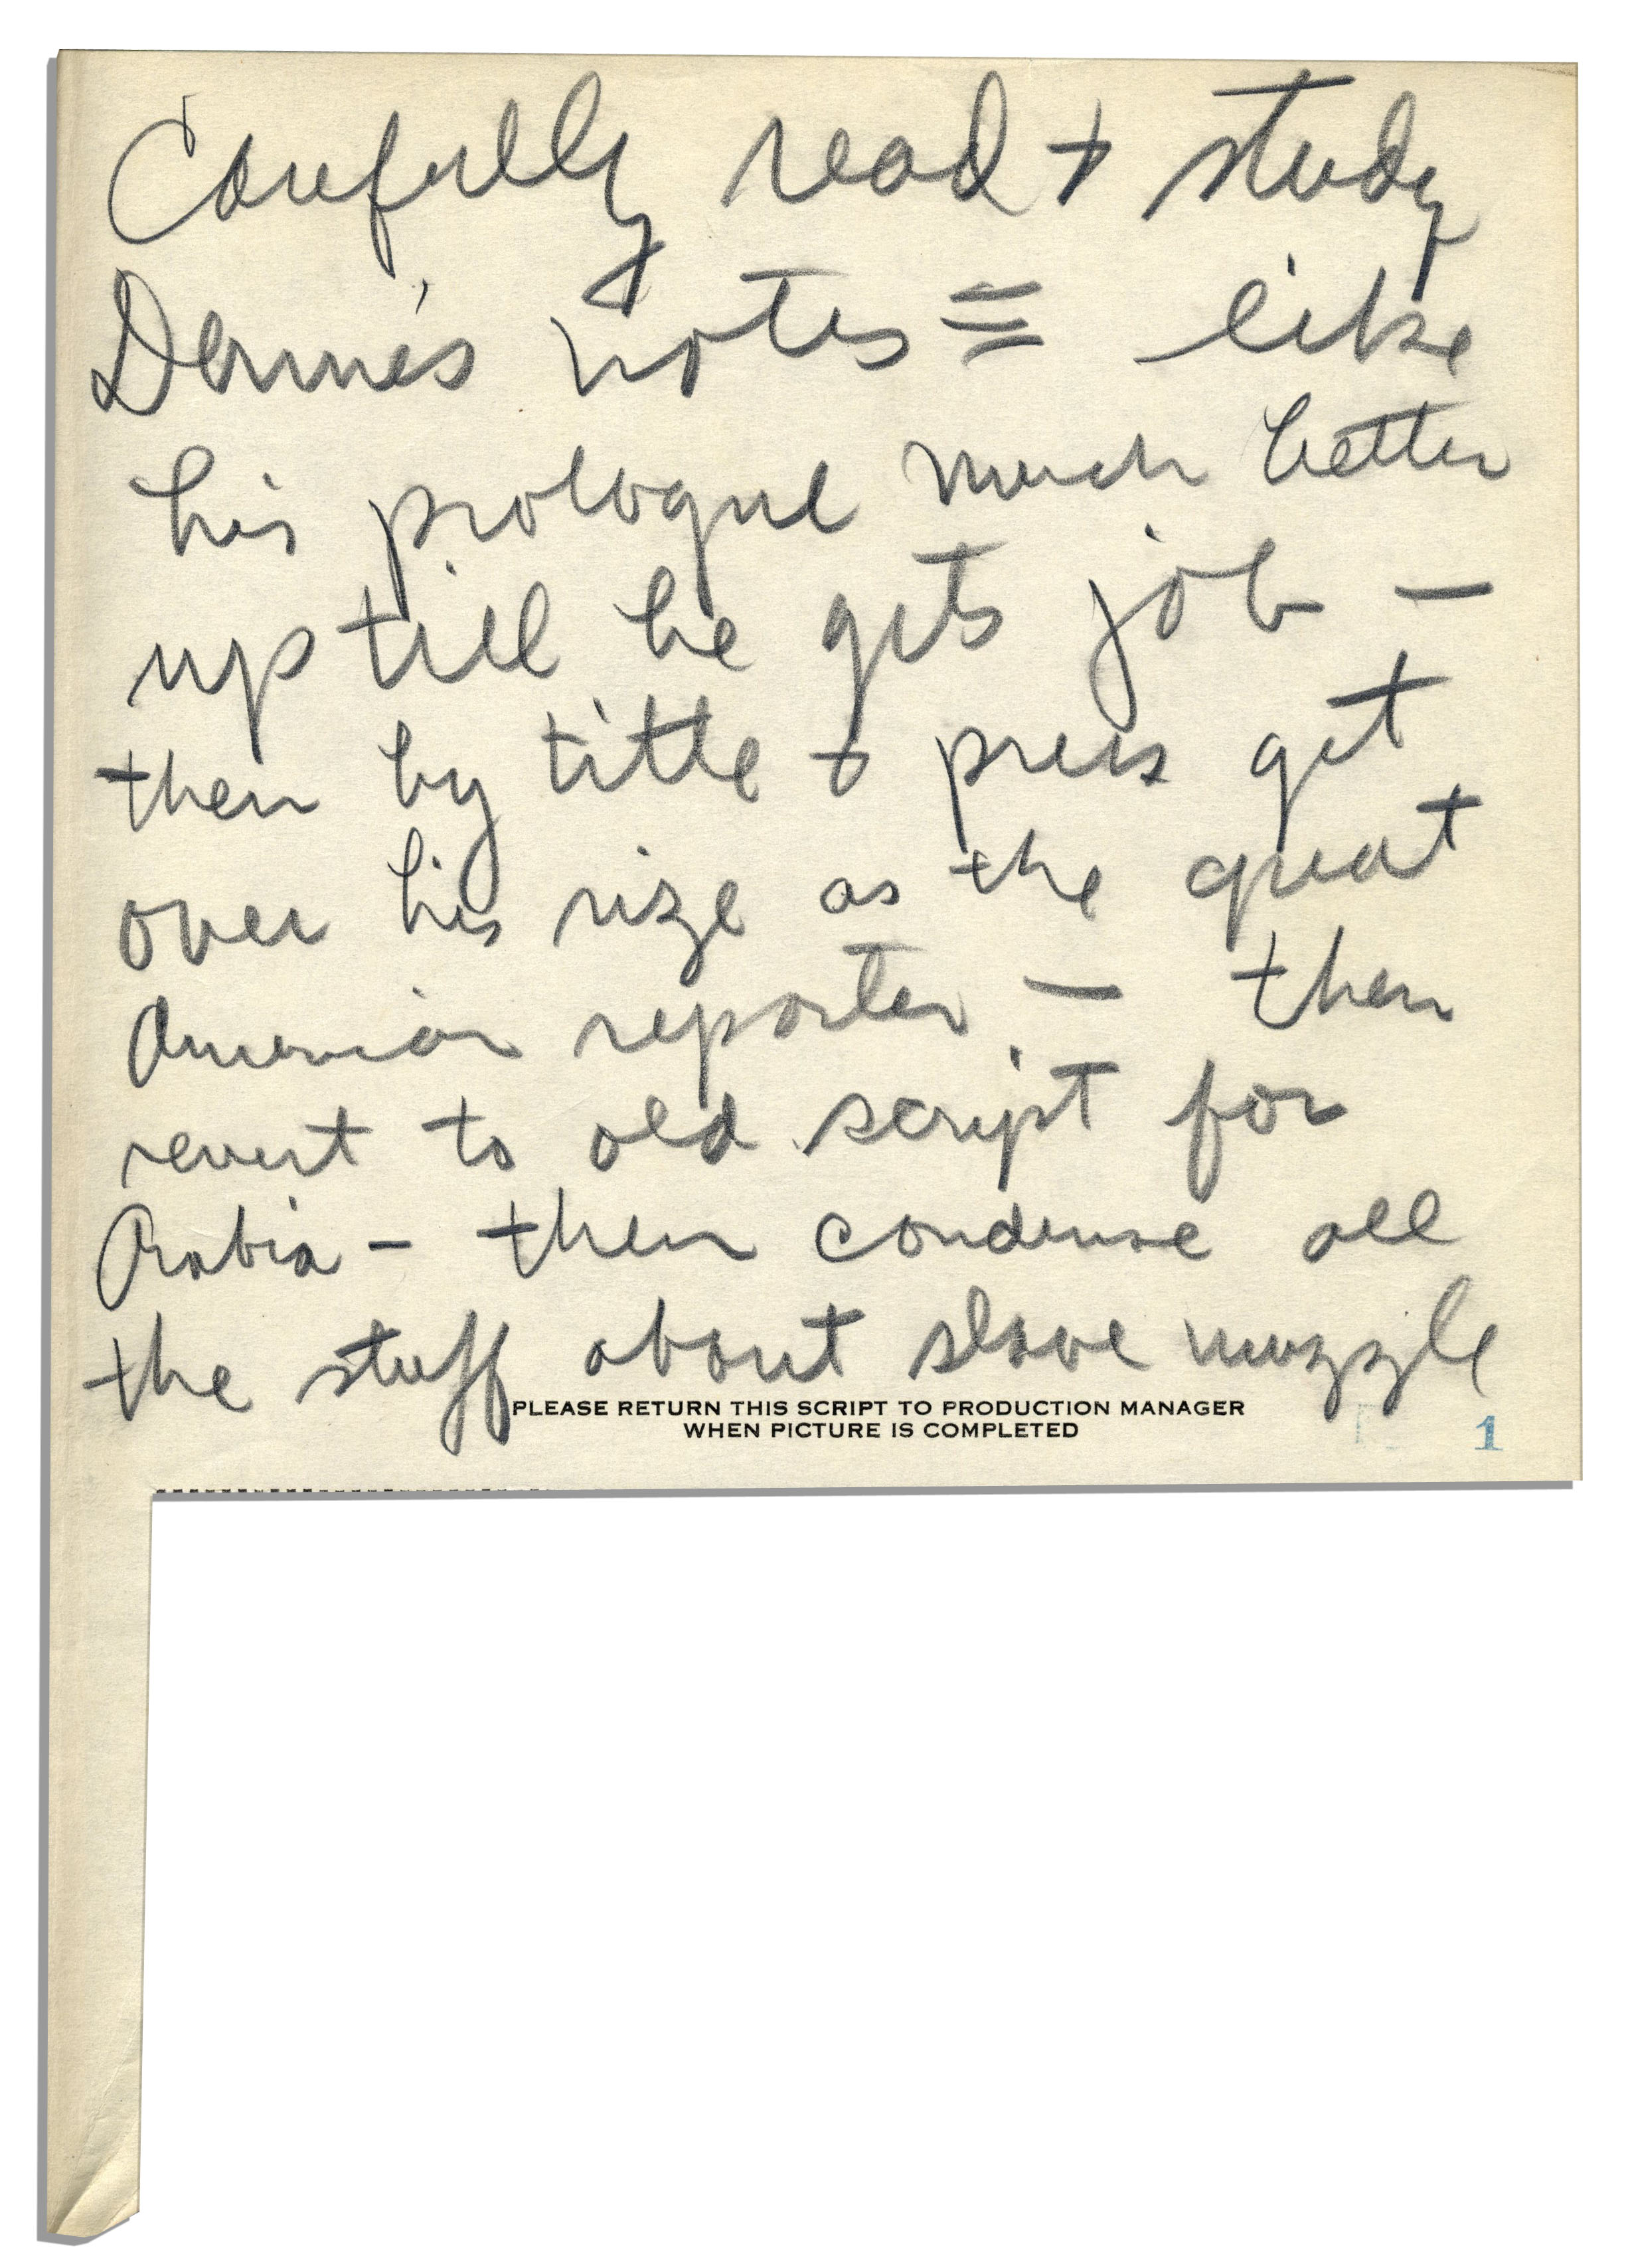 Carefully read + study
Dennis notes = like
his prologue much better
up till he gets job —
then by title + press get
over his rize as the great
American reporter — then
revert to old script for
Arabia — then condense all
the stuff about slave muzzle
PLEASE RETURN THIS SCRIPT TO PRODUCTION MANAGER
WHEN PICTURE IS COMPLETED
1